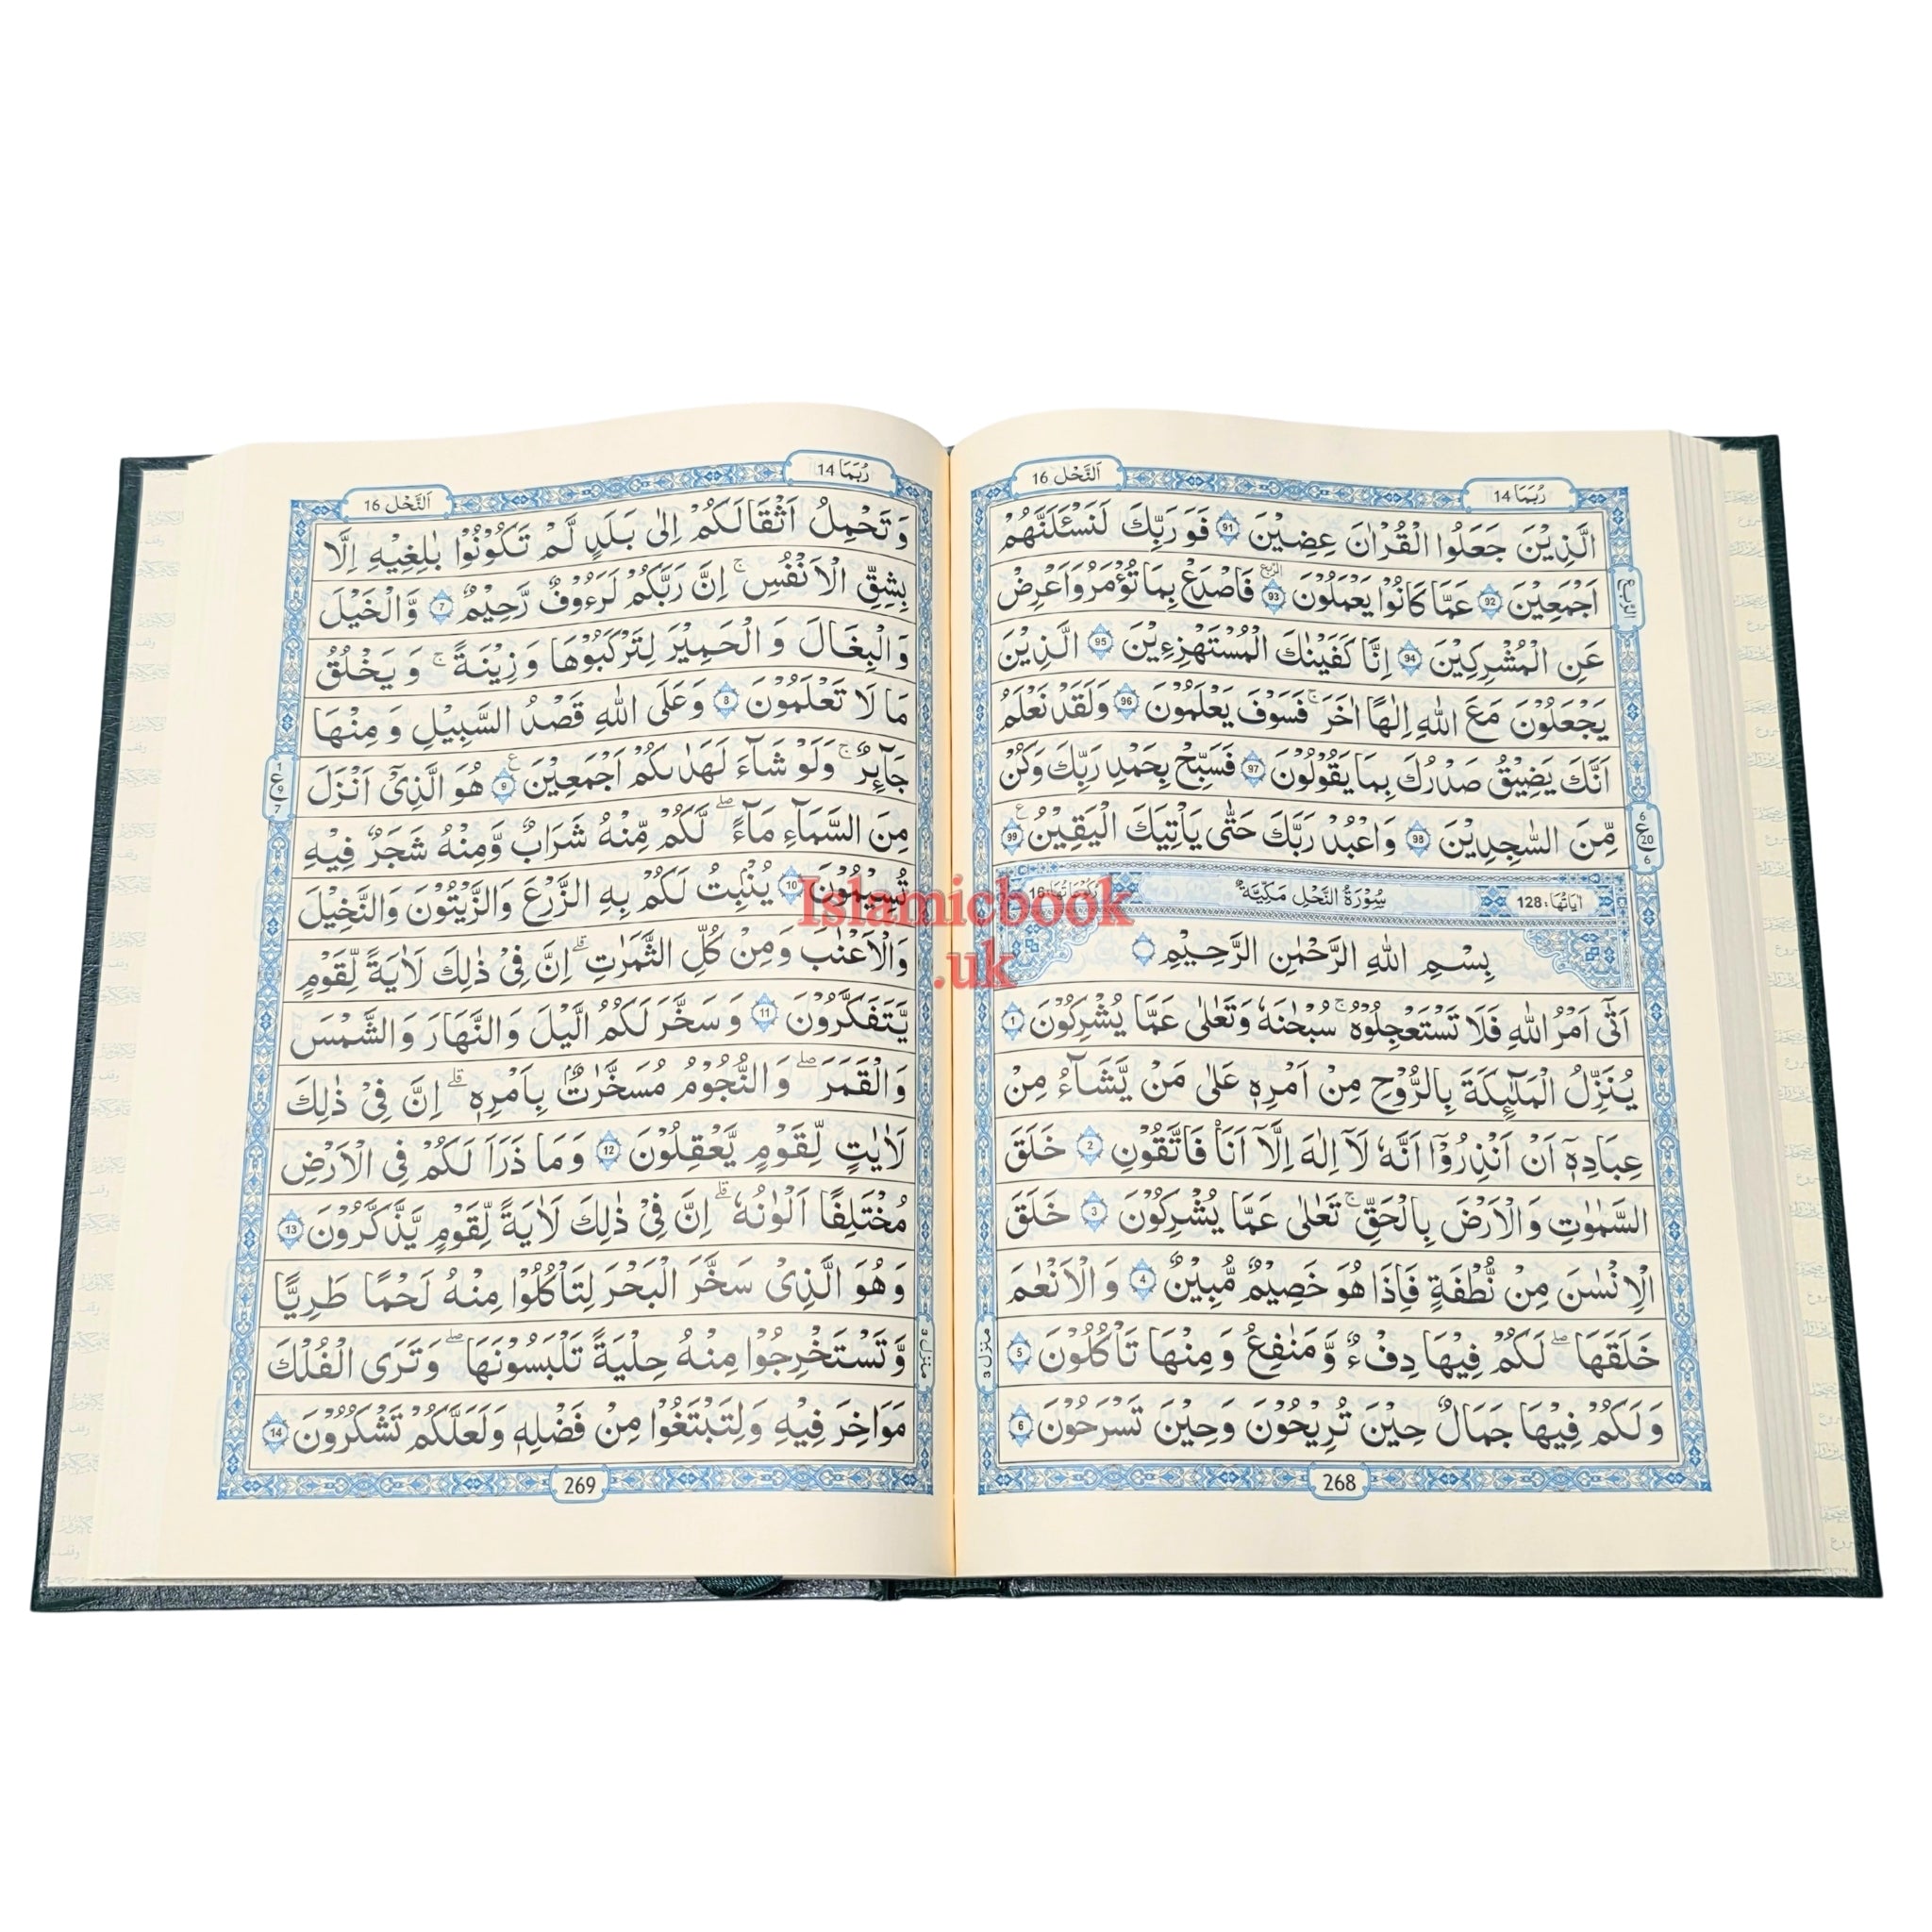 رُبَمَا 14
اَلنَّحْل 16
الَّذِيْنَ جَعَلُوا الْقُرْاٰنَ عِضِيْنَ 91 فَوَرَبِّكَ لَنَسْـَٔلَنَّهُمْ
اَجْمَعِيْنَ 92 عَمَّا كَانُوْا يَعْمَلُوْنَ 93 فَاصْدَعْ بِمَا تُؤْمَرُ وَاَعْرِضْ
الربع
عَنِ الْمُشْرِكِيْنَ 94 اِنَّا كَفَيْنٰكَ الْمُسْتَهْزِءِيْنَ 95 الَّذِيْنَ
يَجْعَلُوْنَ مَعَ اللّٰهِ اِلٰهًا اٰخَرَ ۚ فَسَوْفَ يَعْلَمُوْنَ 96 وَلَقَدْ نَعْلَمُ
اَنَّكَ يَضِيْقُ صَدْرُكَ بِمَا يَقُوْلُوْنَ 97 فَسَبِّحْ بِحَمْدِ رَبِّكَ وَكُنْ
مِّنَ السّٰجِدِيْنَ 98 وَاعْبُدْ رَبَّكَ حَتّٰى يَاْتِيَكَ الْيَقِيْنُ 99
6
ع
20
6
اٰيَاتُهَا: 128 سُوْرَةُ النَّحْلِ مَكِّيَّةٌ رُكُوْعَاتُهَا: 16
بِسْمِ اللّٰهِ الرَّحْمٰنِ الرَّحِيْمِ
اَتٰٓى اَمْرُ اللّٰهِ فَلَا تَسْتَعْجِلُوْهُ ۚ سُبْحٰنَهٗ وَتَعٰلٰى عَمَّا يُشْرِكُوْنَ 1
يُنَزِّلُ الْمَلٰٓئِكَةَ بِالرُّوْحِ مِنْ اَمْرِهٖ عَلٰى مَنْ يَّشَآءُ مِنْ
عِبَادِهٖٓ اَنْ اَنْذِرُوْٓا اَنَّهٗ لَآ اِلٰهَ اِلَّآ اَنَا۠ فَاتَّقُوْنِ 2 خَلَقَ
السَّمٰوٰتِ وَالْاَرْضَ بِالْحَقِّ ۚ تَعٰلٰى عَمَّا يُشْرِكُوْنَ 3 خَلَقَ
الْاِنْسٰنَ مِنْ نُّطْفَةٍ فَاِذَا هُوَ خَصِيْمٌ مُّبِيْنٌ 4 وَالْاَنْعٰمَ
خَلَقَهَا ۖ لَكُمْ فِيْهَا دِفْءٌ وَّمَنٰفِعُ وَمِنْهَا تَاْكُلُوْنَ 5
وَلَكُمْ فِيْهَا جَمَالٌ حِيْنَ تُرِيْحُوْنَ وَحِيْنَ تَسْرَحُوْنَ 6
منزل 3
268
رُبَمَا 14
اَلنَّحْل 16
وَتَحْمِلُ اَثْقَالَكُمْ اِلٰى بَلَدٍ لَّمْ تَكُوْنُوْا بٰلِغِيْهِ اِلَّا
بِشِقِّ الْاَنْفُسِ ۚ اِنَّ رَبَّكُمْ لَرَءُوْفٌ رَّحِيْمٌ 7 وَّالْخَيْلَ
وَالْبِغَالَ وَالْحَمِيْرَ لِتَرْكَبُوْهَا وَزِيْنَةً ۚ وَيَخْلُقُ
مَا لَا تَعْلَمُوْنَ 8 وَعَلَى اللّٰهِ قَصْدُ السَّبِيْلِ وَمِنْهَا
جَآئِرٌ ۚ وَلَوْ شَآءَ لَهَدٰىكُمْ اَجْمَعِيْنَ 9 هُوَ الَّذِيْٓ اَنْزَلَ
1
ع
9
7
مِنَ السَّمَآءِ مَآءً ۖ لَّكُمْ مِّنْهُ شَرَابٌ وَّمِنْهُ شَجَرٌ فِيْهِ
تُسِيْمُوْنَ 10 يُنْۢبِتُ لَكُمْ بِهِ الزَّرْعَ وَالزَّيْتُوْنَ وَالنَّخِيْلَ
وَالْاَعْنٰبَ وَمِنْ كُلِّ الثَّمَرٰتِ ۗ اِنَّ فِيْ ذٰلِكَ لَاٰيَةً لِّقَوْمٍ
يَّتَفَكَّرُوْنَ 11 وَسَخَّرَ لَكُمُ الَّيْلَ وَالنَّهَارَ وَالشَّمْسَ
وَالْقَمَرَ ۖ وَالنُّجُوْمُ مُسَخَّرٰتٌۢ بِاَمْرِهٖ ۗ اِنَّ فِيْ ذٰلِكَ
لَاٰيٰتٍ لِّقَوْمٍ يَّعْقِلُوْنَ 12 وَمَا ذَرَاَ لَكُمْ فِي الْاَرْضِ
مُخْتَلِفًا اَلْوٰنُهٗ ۗ اِنَّ فِيْ ذٰلِكَ لَاٰيَةً لِّقَوْمٍ يَّذَّكَّرُوْنَ 13
وَهُوَ الَّذِيْ سَخَّرَ الْبَحْرَ لِتَاْكُلُوْا مِنْهُ لَحْمًا طَرِيًّا
وَّتَسْتَخْرِجُوْا مِنْهُ حِلْيَةً تَلْبَسُوْنَهَا ۖ وَتَرَى الْفُلْكَ
مَوَاخِرَ فِيْهِ وَلِتَبْتَغُوْا مِنْ فَضْلِهٖ وَلَعَلَّكُمْ تَشْكُرُوْنَ 14
منزل 3
269
Islamicbook
.uk